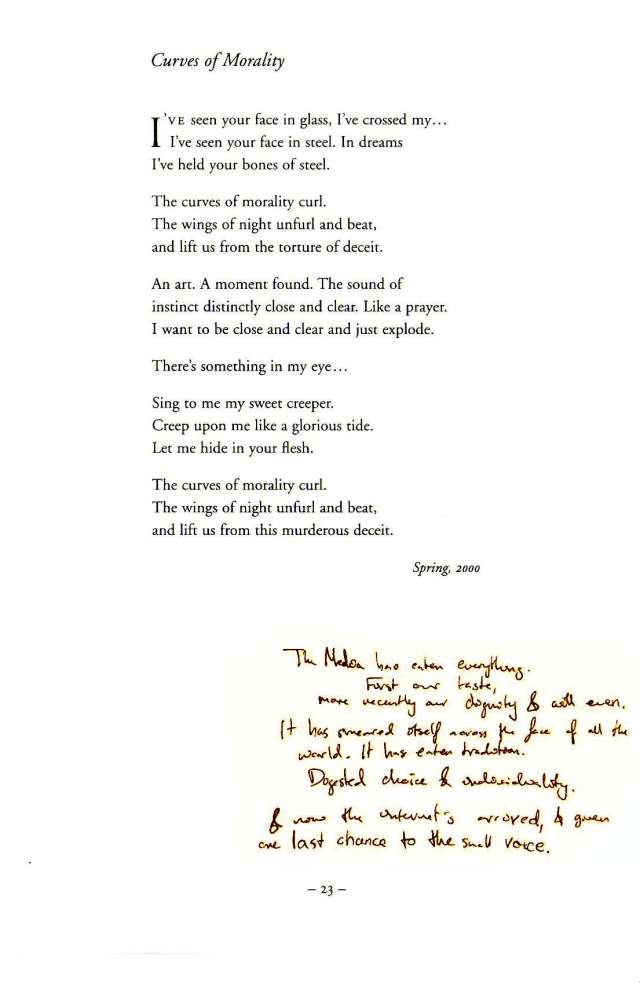 Curves of Morality
I'VE seen your face in glass, I've crossed my…
I've seen your face in steel. In dreams
I've held your bones of steel.
The curves of morality curl.
The wings of night unfurl and beat,
and lift us from the torture of deceit.
An art. A moment found. The sound of
instinct distinctly close and clear. Like a prayer.
I want to be close and clear and just explode.
There's something in my eye…
Sing to me my sweet creeper.
Creep upon me like a glorious tide.
Let me hide in your flesh.
The curves of morality curl.
The wings of night unfurl and beat,
and lift us from this murderous deceit.
Spring, 2000
The Media has eaten everything.
First our taste,
more recently our dignity & even.
It has smeared itself across the face of all the
world. It has eaten tradition.
Digested choice & individuality.
& now the internet's arrived, & given
one last chance to the small voice.
– 23 –